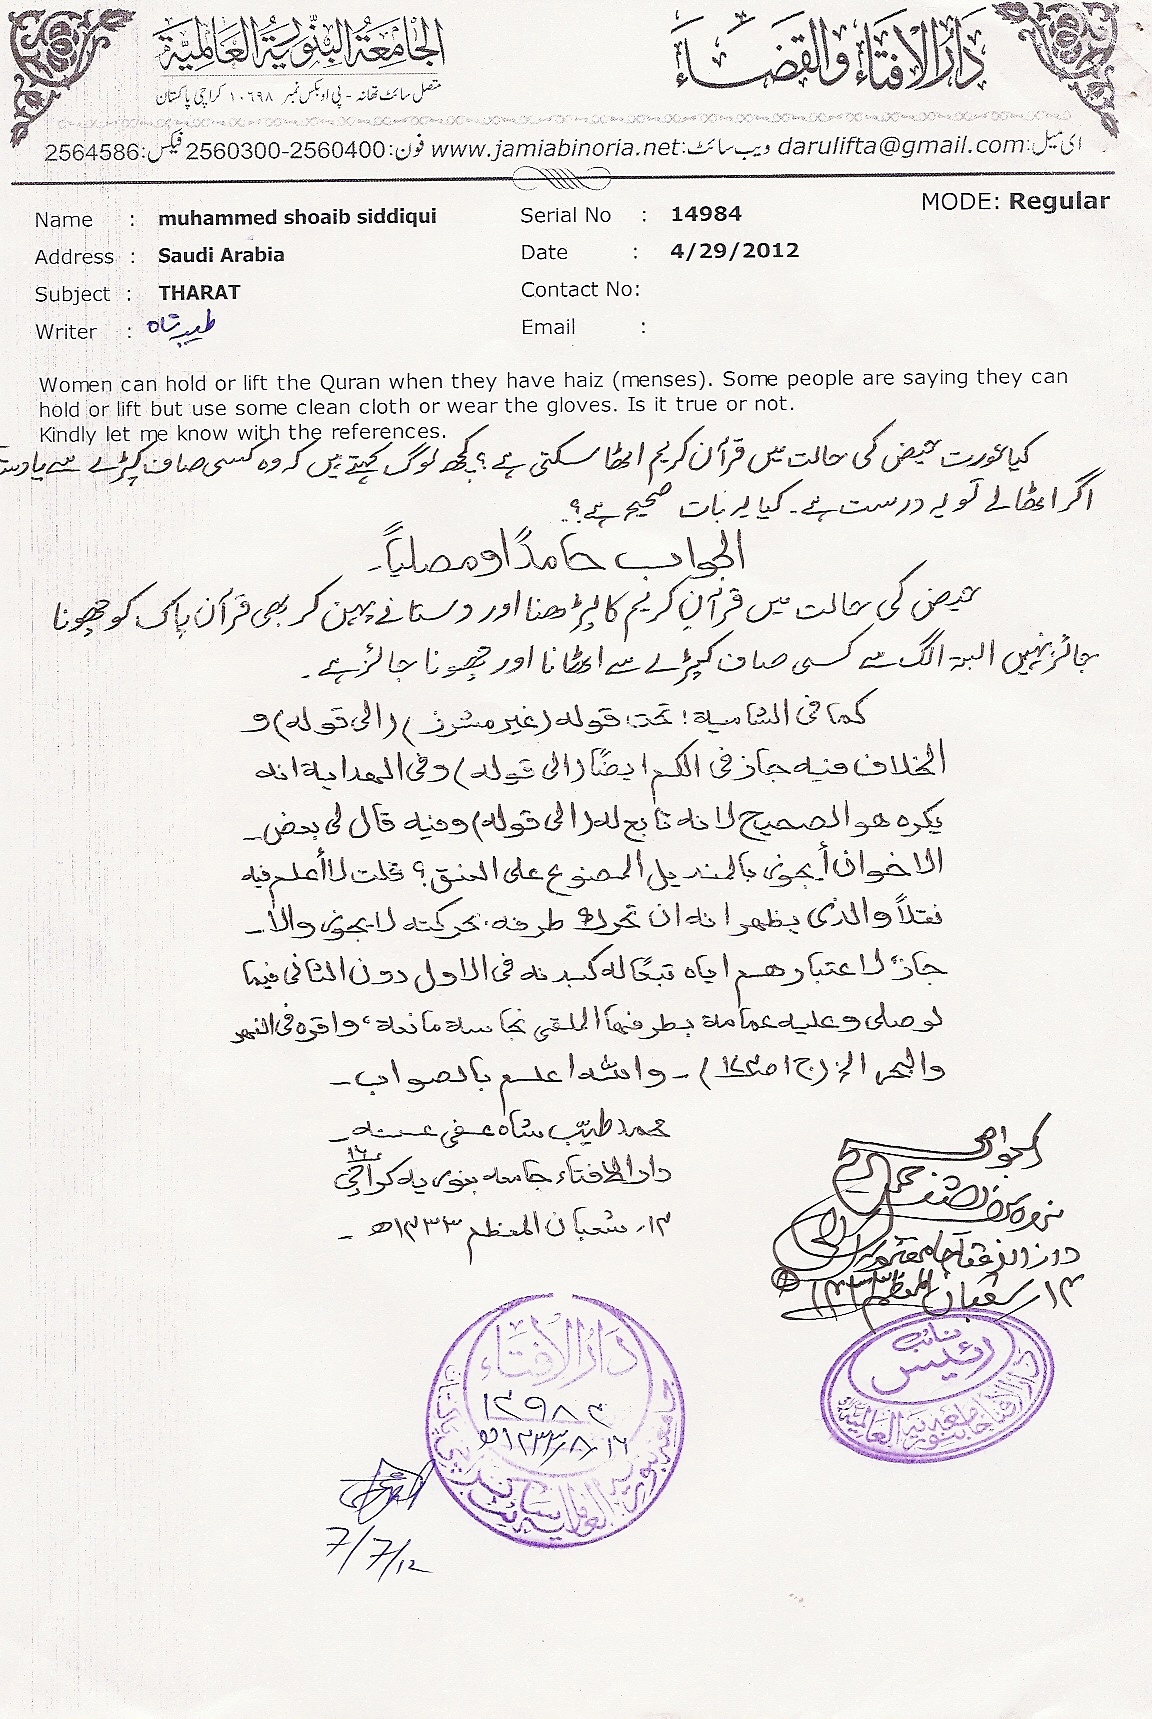 دَارُ الافتَاء والقضَاء
الجَامعَة البنّوريَة العَالميَّة
متصل سائٹ تھانہ - پی او بکس نمبر ۱۰۶۹۸ کراچی پاکستان
ای میل: darulifta@gmail.com ویب سائٹ: www.jamiabinoria.net فون: 2560300-2560400 فیکس: 2564586
MODE: Regular
Name : muhammed shoaib siddiqui Serial No : 14984
Address : Saudi Arabia Date : 4/29/2012
Subject : THARAT Contact No:
Writer : طیب شاہ Email :
Women can hold or lift the Quran when they have haiz (menses). Some people are saying they can
hold or lift but use some clean cloth or wear the gloves. Is it true or not.
Kindly let me know with the references.
کیا عورت حیض کی حالت میں قرآن کریم اٹھا سکتی ہے؟ کچھ لوگ کہتے ہیں کہ وہ کسی صاف کپڑے سے یا
اگر اٹھا لے تو یہ درست ہے۔ کیا یہ بات صحیح ہے؟
الجواب حامدًا و مصلیاً۔
حیض کی حالت میں قرآن کریم کا پڑھنا اور دستانے پہن کر بھی قرآن پاک کو چھونا
جائز نہیں البتہ الگ سے کسی صاف کپڑے سے اٹھانا اور چھونا جائز ہے۔
کما فی الشامیة: تحت قوله (غیر مشرز) (الی قوله) و
الخلاف فیه جاز فی الکم ایضًا (الی قوله) وفی الهدایة انه
یکره هو الصحیح لانه تابع له (الی قوله) وفیه قال لی بعض۔
الاخوان أیجوز بالمندیل الموضوع علی العنق؟ قلت لا أعلم فیه
نقلاً والذی یظهر انه ان تحرك طرفه بحرکته لا یجوز والا۔
جاز لاعتبارهم ایاه تبعًا له کبدنه فی الاول دون الثانی فیما
لو صلی وعلیه عمامة بطرفها الملقی نجاسة مانعة، واقره فی النهر
والبحر الخ (ج۱ ص۱۷۴)۔ واللہ اعلم بالصواب۔
محمد طیّب شاہ عفی عنہ۔
دارالافتاء جامعہ بنوریہ کراچی ۱۶
۱۴؍ شعبان المعظم ۱۴۳۳ھ۔
الجواب صحیح
۱۴؍ شعبان المعظم ۱۴۳۳
نائب
رئیس
دارالافتاء جامعہ بنوریہ العالمیہ
دَارُ الافتَاء
۱۴۹۸۴
۱۶؍۸؍۱۴۳۳ھ
7/7/12